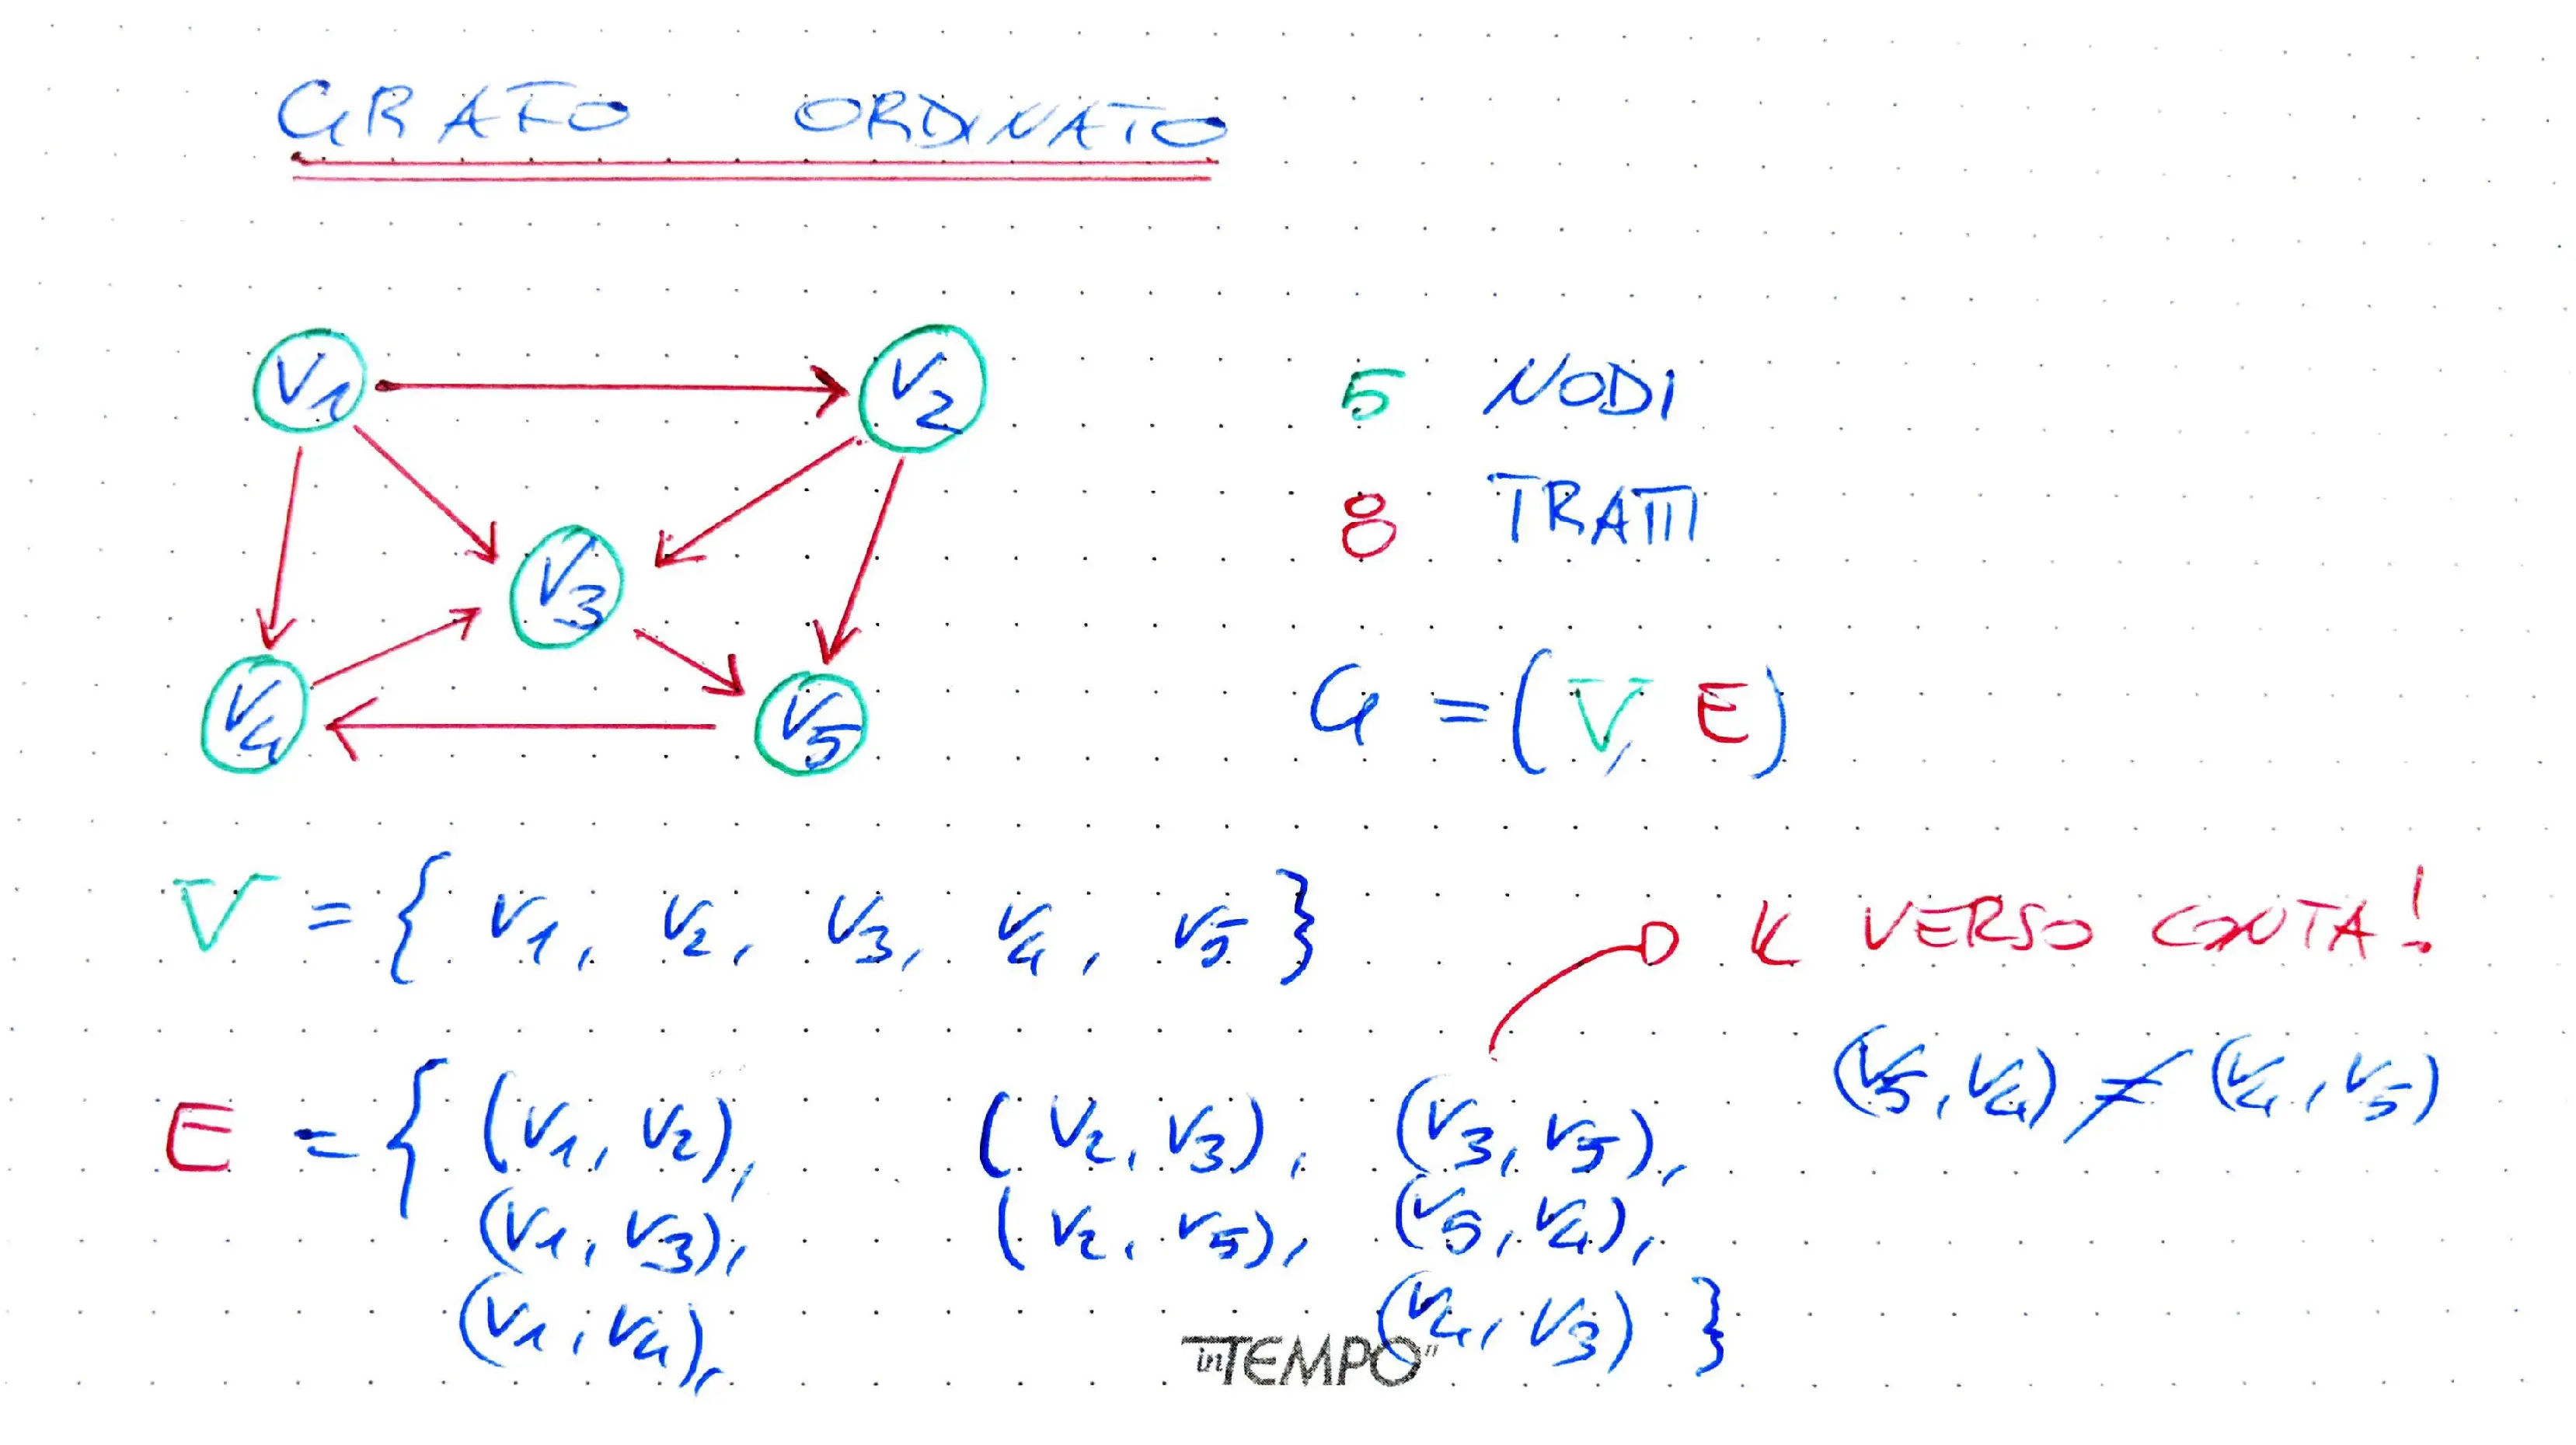 GRAFO ORDINATO
V1
V2
V3
V4
V5
5 NODI
8 TRATTI
G = (V, E)
V = { V1, V2, V3, V4, V5 }
IL VERSO CONTA!
(V5, V4) ≠ (V4, V5)
E = { (V1, V2), (V2, V3), (V3, V5),
(V1, V3), (V2, V5), (V5, V4),
(V1, V4), (V4, V3) }
inTEMPO"